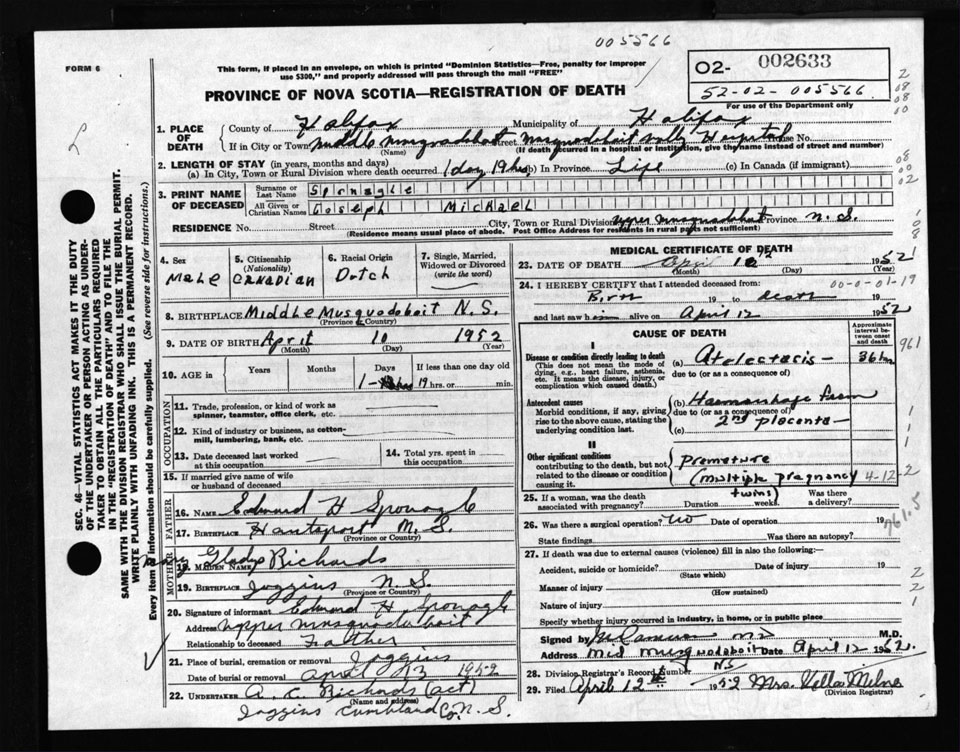 005566
FORM 6
This form, if placed in an envelope, on which is printed "Dominion Statistics—Free, penalty for improper
use $300," and properly addressed will pass through the mail "FREE"
02- 002633
52-02-005566
For use of the Department only
PROVINCE OF NOVA SCOTIA—REGISTRATION OF DEATH
1. PLACE OF DEATH
County of Halifax Municipality of Halifax
If in City or Town Middle Musquodoboit Street Musquodoboit Valley Hospital House No.
(Name) (If death occurred in a hospital or institution, give the name instead of street and number)
2. LENGTH OF STAY (in years, months and days)
(a) In City, Town or Rural Division where death occurred 1 day 19 hrs (b) In Province Life (c) In Canada (if immigrant)
3. PRINT NAME OF DECEASED
Surname or Last Name Sponagle
All Given or Christian Names Joseph Michael
RESIDENCE No. Street City, Town or Rural Division Upper Musquodoboit Province N.S.
(Residence means usual place of abode. Post Office Address for residents in rural parts not sufficient)
4. Sex Male
5. Citizenship (Nationality) Canadian
6. Racial Origin Dutch
7. Single, Married, Widowed or Divorced (write the word)
8. BIRTHPLACE Middle Musquodoboit N.S.
(Province or Country)
9. DATE OF BIRTH April 10 1952
(Month) (Day) (Year)
10. AGE in Years Months Days If less than one day old
1- 19 hrs. or min.
OCCUPATION
11. Trade, profession, or kind of work as spinner, teamster, office clerk, etc.
12. Kind of industry or business, as cotton-mill, lumbering, bank, etc.
13. Date deceased last worked at this occupation
14. Total yrs. spent in this occupation
15. If married give name of wife or husband of deceased
FATHER
16. NAME Edward H Sponagle
17. BIRTHPLACE Hantsport N.S.
(Province or Country)
MOTHER
18. MAIDEN NAME Gladys Richards
19. BIRTHPLACE Joggins N.S.
(Province or Country)
20. Signature of informant Edward H. Sponagle
Address Upper Musquodoboit
Relationship to deceased Father
21. Place of burial, cremation or removal Joggins
Date of burial or removal April 13 1952
22. UNDERTAKER A. C. Richards (act)
(Name and address)
Joggins Cumbland Co. N.S.
MEDICAL CERTIFICATE OF DEATH
23. DATE OF DEATH April 12 1952
(Month) (Day) (Year)
24. I HEREBY CERTIFY that I attended deceased from: 00-0-01-19
Birth 19 to death 19
and last saw him alive on April 12 1952
CAUSE OF DEATH
Approximate interval between onset and death
I
Disease or condition directly leading to death
(This does not mean the mode of dying, e.g., heart failure, asthenia, etc. It means the disease, injury, or complication which caused death.)
(a) Atelectasis -
due to (or as a consequence of)
Antecedent causes
Morbid conditions, if any, giving rise to the above cause, stating the underlying condition last.
(b) Haemorrhage from
due to (or as a consequence of)
(c) 2nd placenta -
II
Other significant conditions
contributing to the death, but not related to the disease or condition causing it.
Premature
(multiple pregnancy 4-12-2
twins)
25. If a woman, was the death associated with pregnancy? Duration weeks. Was there a delivery?
26. Was there surgical operation? No Date of operation 19 761.5
State findings Was there an autopsy?
27. If death was due to external causes (violence) fill in also the following:—
Accident, suicide or homicide? Date of injury 19
(State which)
Manner of injury
(How sustained)
Nature of injury
Specify whether injury occurred in industry, in home, or in public place
Signed by M.D.
Address Mid Musquodoboit Date April 12 1952.
N.S.
28. Division Registrar's Record Number
29. Filed April 12th 1952 Mrs. Milne
(Division Registrar)
SEC. 46—VITAL STATISTICS ACT MAKES IT THE DUTY
OF THE UNDERTAKER OR PERSON ACTING AS UNDER-
TAKER TO OBTAIN ALL THE PARTICULARS REQUIRED
IN THE "REGISTRATION OF DEATH" AND TO FILE THE
SAME WITH THE DIVISION REGISTRAR WHO SHALL ISSUE THE BURIAL PERMIT.
WRITE PLAINLY WITH UNFADING INK. THIS IS A PERMANENT RECORD.
Every item of information should be carefully supplied. (See reverse side for instructions.)